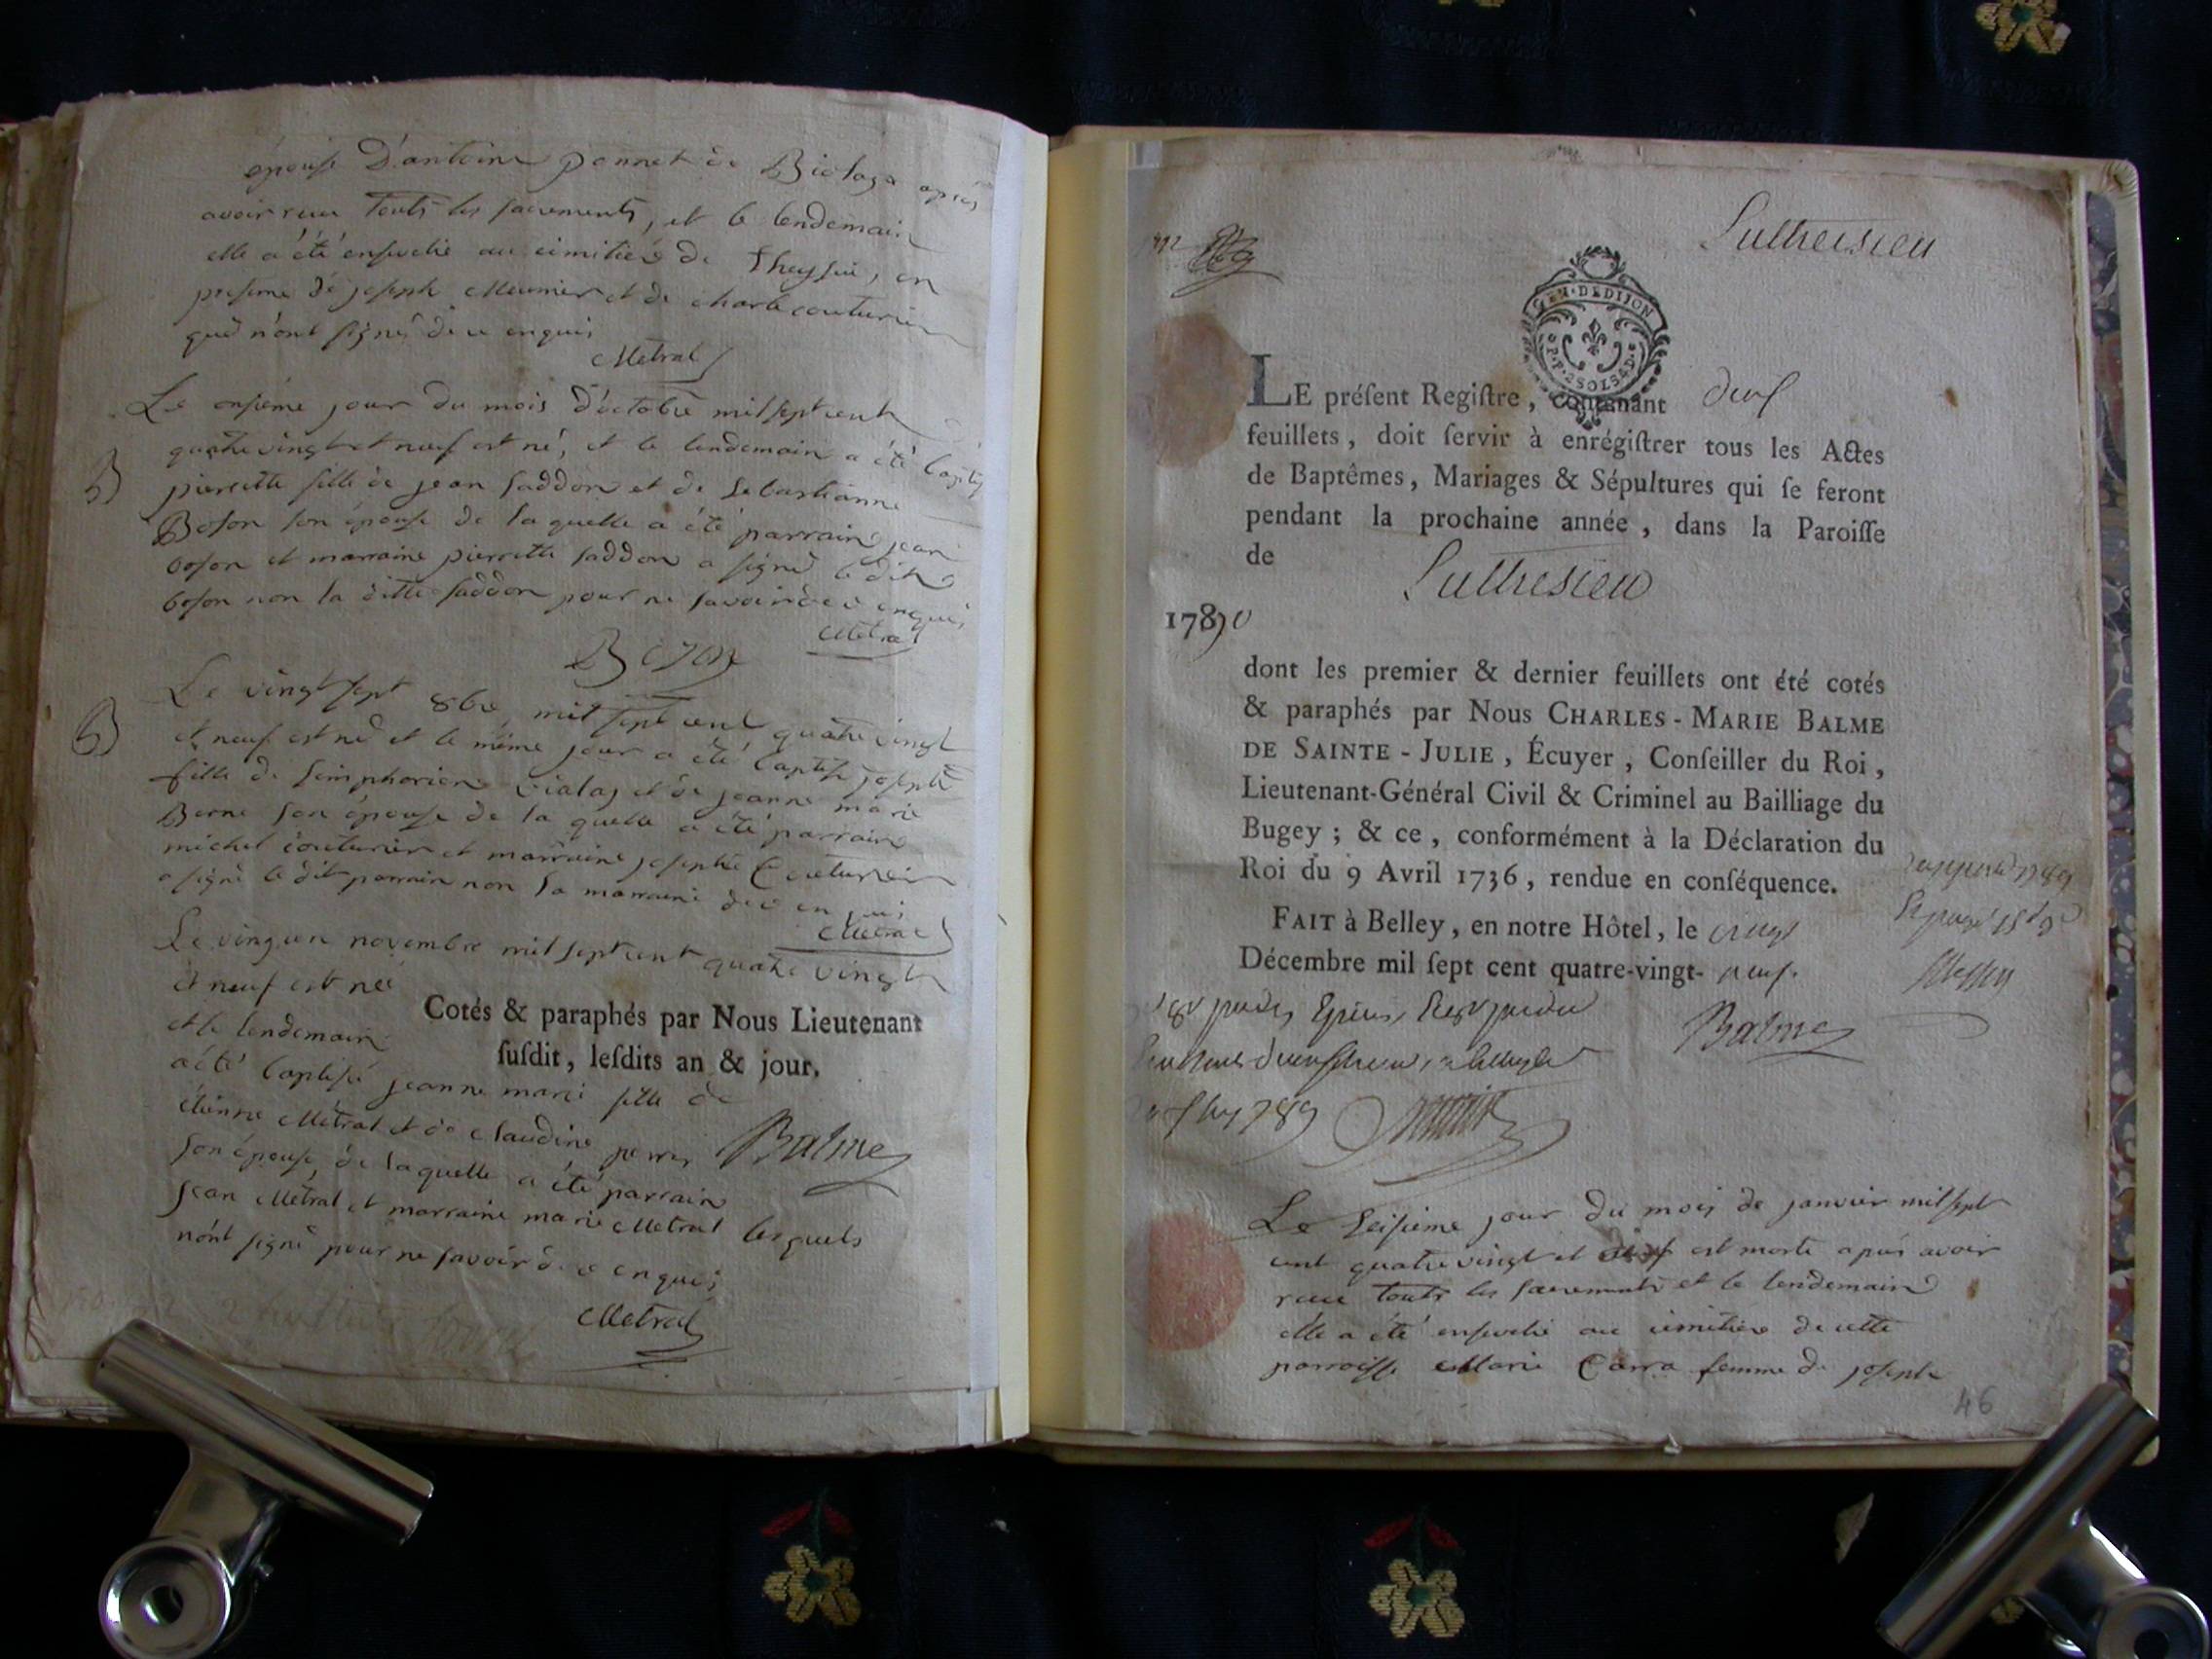 épouse D'antoine ponnet de Biolaza après
avoir receu touts les sacrements, et le lendemain
elle a été ensevelie au cimitière de theysieu, en
presence de joseph Meunier et de charle couturier
qui n'ont signés de ce enquis
Metral
Le onsième jour du mois d'octobre mil sept cent
quatre vingt et neuf est né, et le lendemain a été baptisé
B
pierrette fille de jean saddon et de sebastianne
Boson son épouse de la quelle a été parrain jean
boson et marraine pierrette saddon a signé le dit
boson non la ditte saddon pour ne savoir de ce enquis
Metral
Bozon
Le vingt sept 8bre mil sept cent quatre vingt
B
et neuf est né et le même jour a été baptisé josephte
fille de simphorien vialaz et de jeanne marie
Berne son épouse de la quelle a été parrain
michel couturier et marraine josephte Couturier
a signé le dit parrain non la marraine de ce enquis
Metral
Le vingt un novembre mil sept cent quatre vingt
et neuf est né
et le lendemain
Cotés & paraphés par Nous Lieutenant
ſuſdit, leſdits an & jour.
a été baptisé jeanne marie fille de
étienne Metral et de claudine perrin
Balme
son épouse, de laquelle a été parrain
jean Metral et marraine marie Metral lesquels
n'ont signé pour ne savoir de ce enquis
Metral
Luthresieu
GEN. DE DIJON
P.P. 2 SOLS 4 D.
LE préſent Regiſtre, contenant deux
feuillets, doit ſervir à enrégiſtrer tous les Actes
de Baptêmes, Mariages & Sépultures qui ſe feront
pendant la prochaine année, dans la Paroiſſe
de Luthresieu
1790
dont les premier & dernier feuillets ont été cotés
& paraphés par Nous CHARLES-MARIE BALME
DE SAINTE-JULIE, Écuyer, Conſeiller du Roi,
Lieutenant-Général Civil & Criminel au Bailliage du
Bugey; & ce, conformément à la Déclaration du
Roi du 9 Avril 1736, rendue en conſéquence.
FAIT à Belley, en notre Hôtel, le vingt
Décembre mil ſept cent quatre-vingt-neuf.
Balme
Le seisième jour du mois de janvier mil sept
cent quatre vingt et est morte après avoir
receu touts les sacrements et le lendemain
elle a été ensevelie au cimitière de cette
parroisse Marie Carra femme de joseph
46